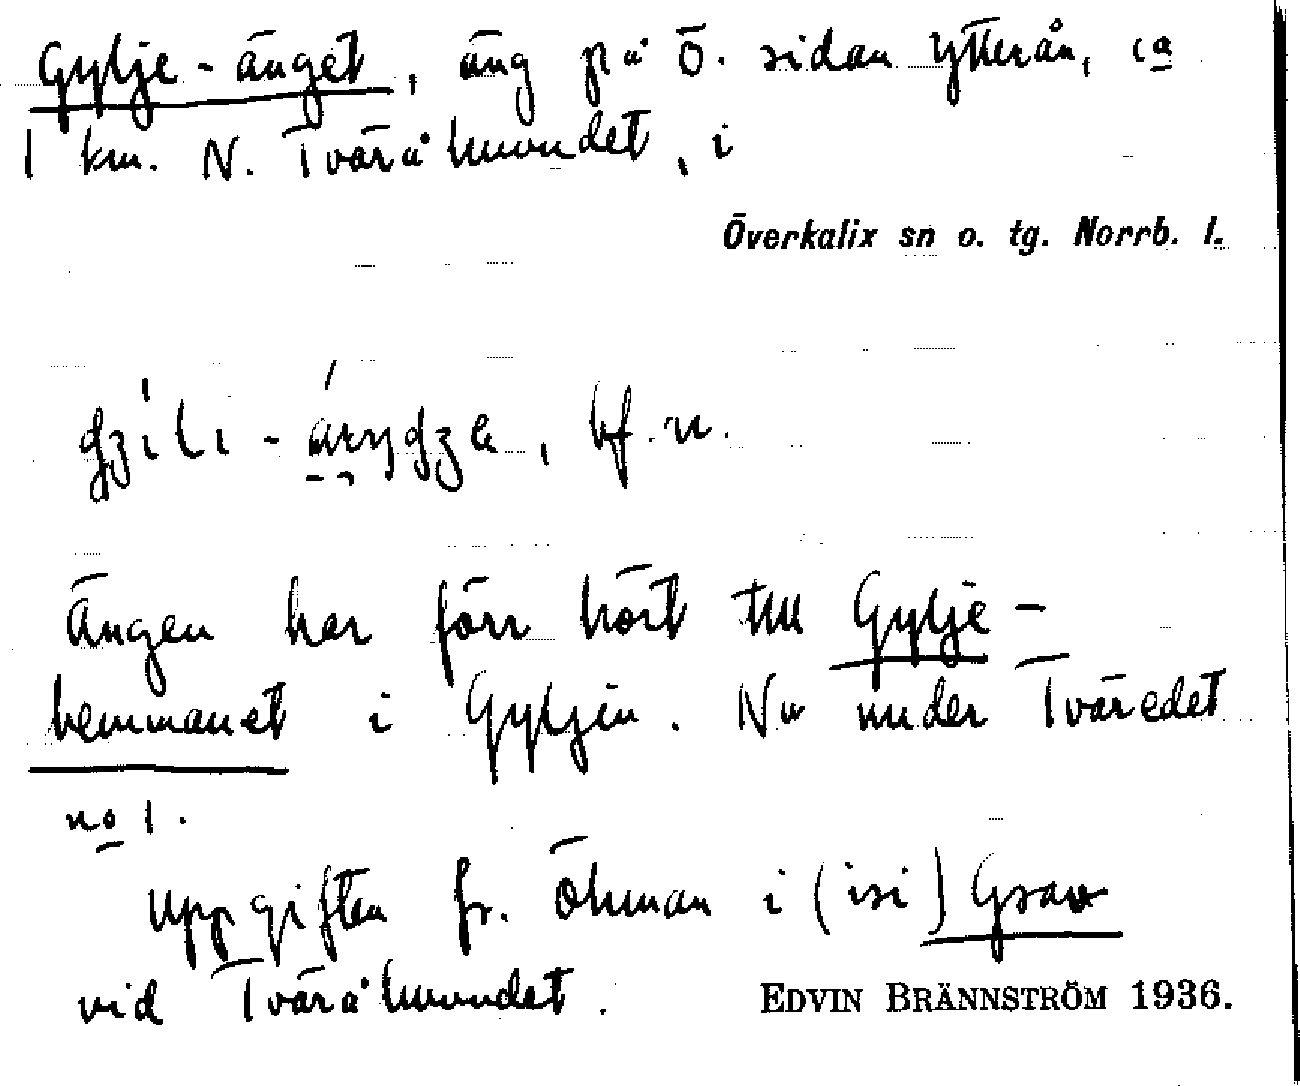 Gylje-änget, äng på ö. sidan Ytterån, ca
1 km. N. Tvärålmundet, i
Överkalix sn o. tg. Norrb. l.
bf. n.
Ängen har förr hört till Gylje-
hemmanet i Gyljen. Nu under Tväredet
no 1.
Uppgiften fr. Öhman i (isi) Grav
vid Tvärålmundet.
EDVIN BRÄNNSTRÖM 1936.